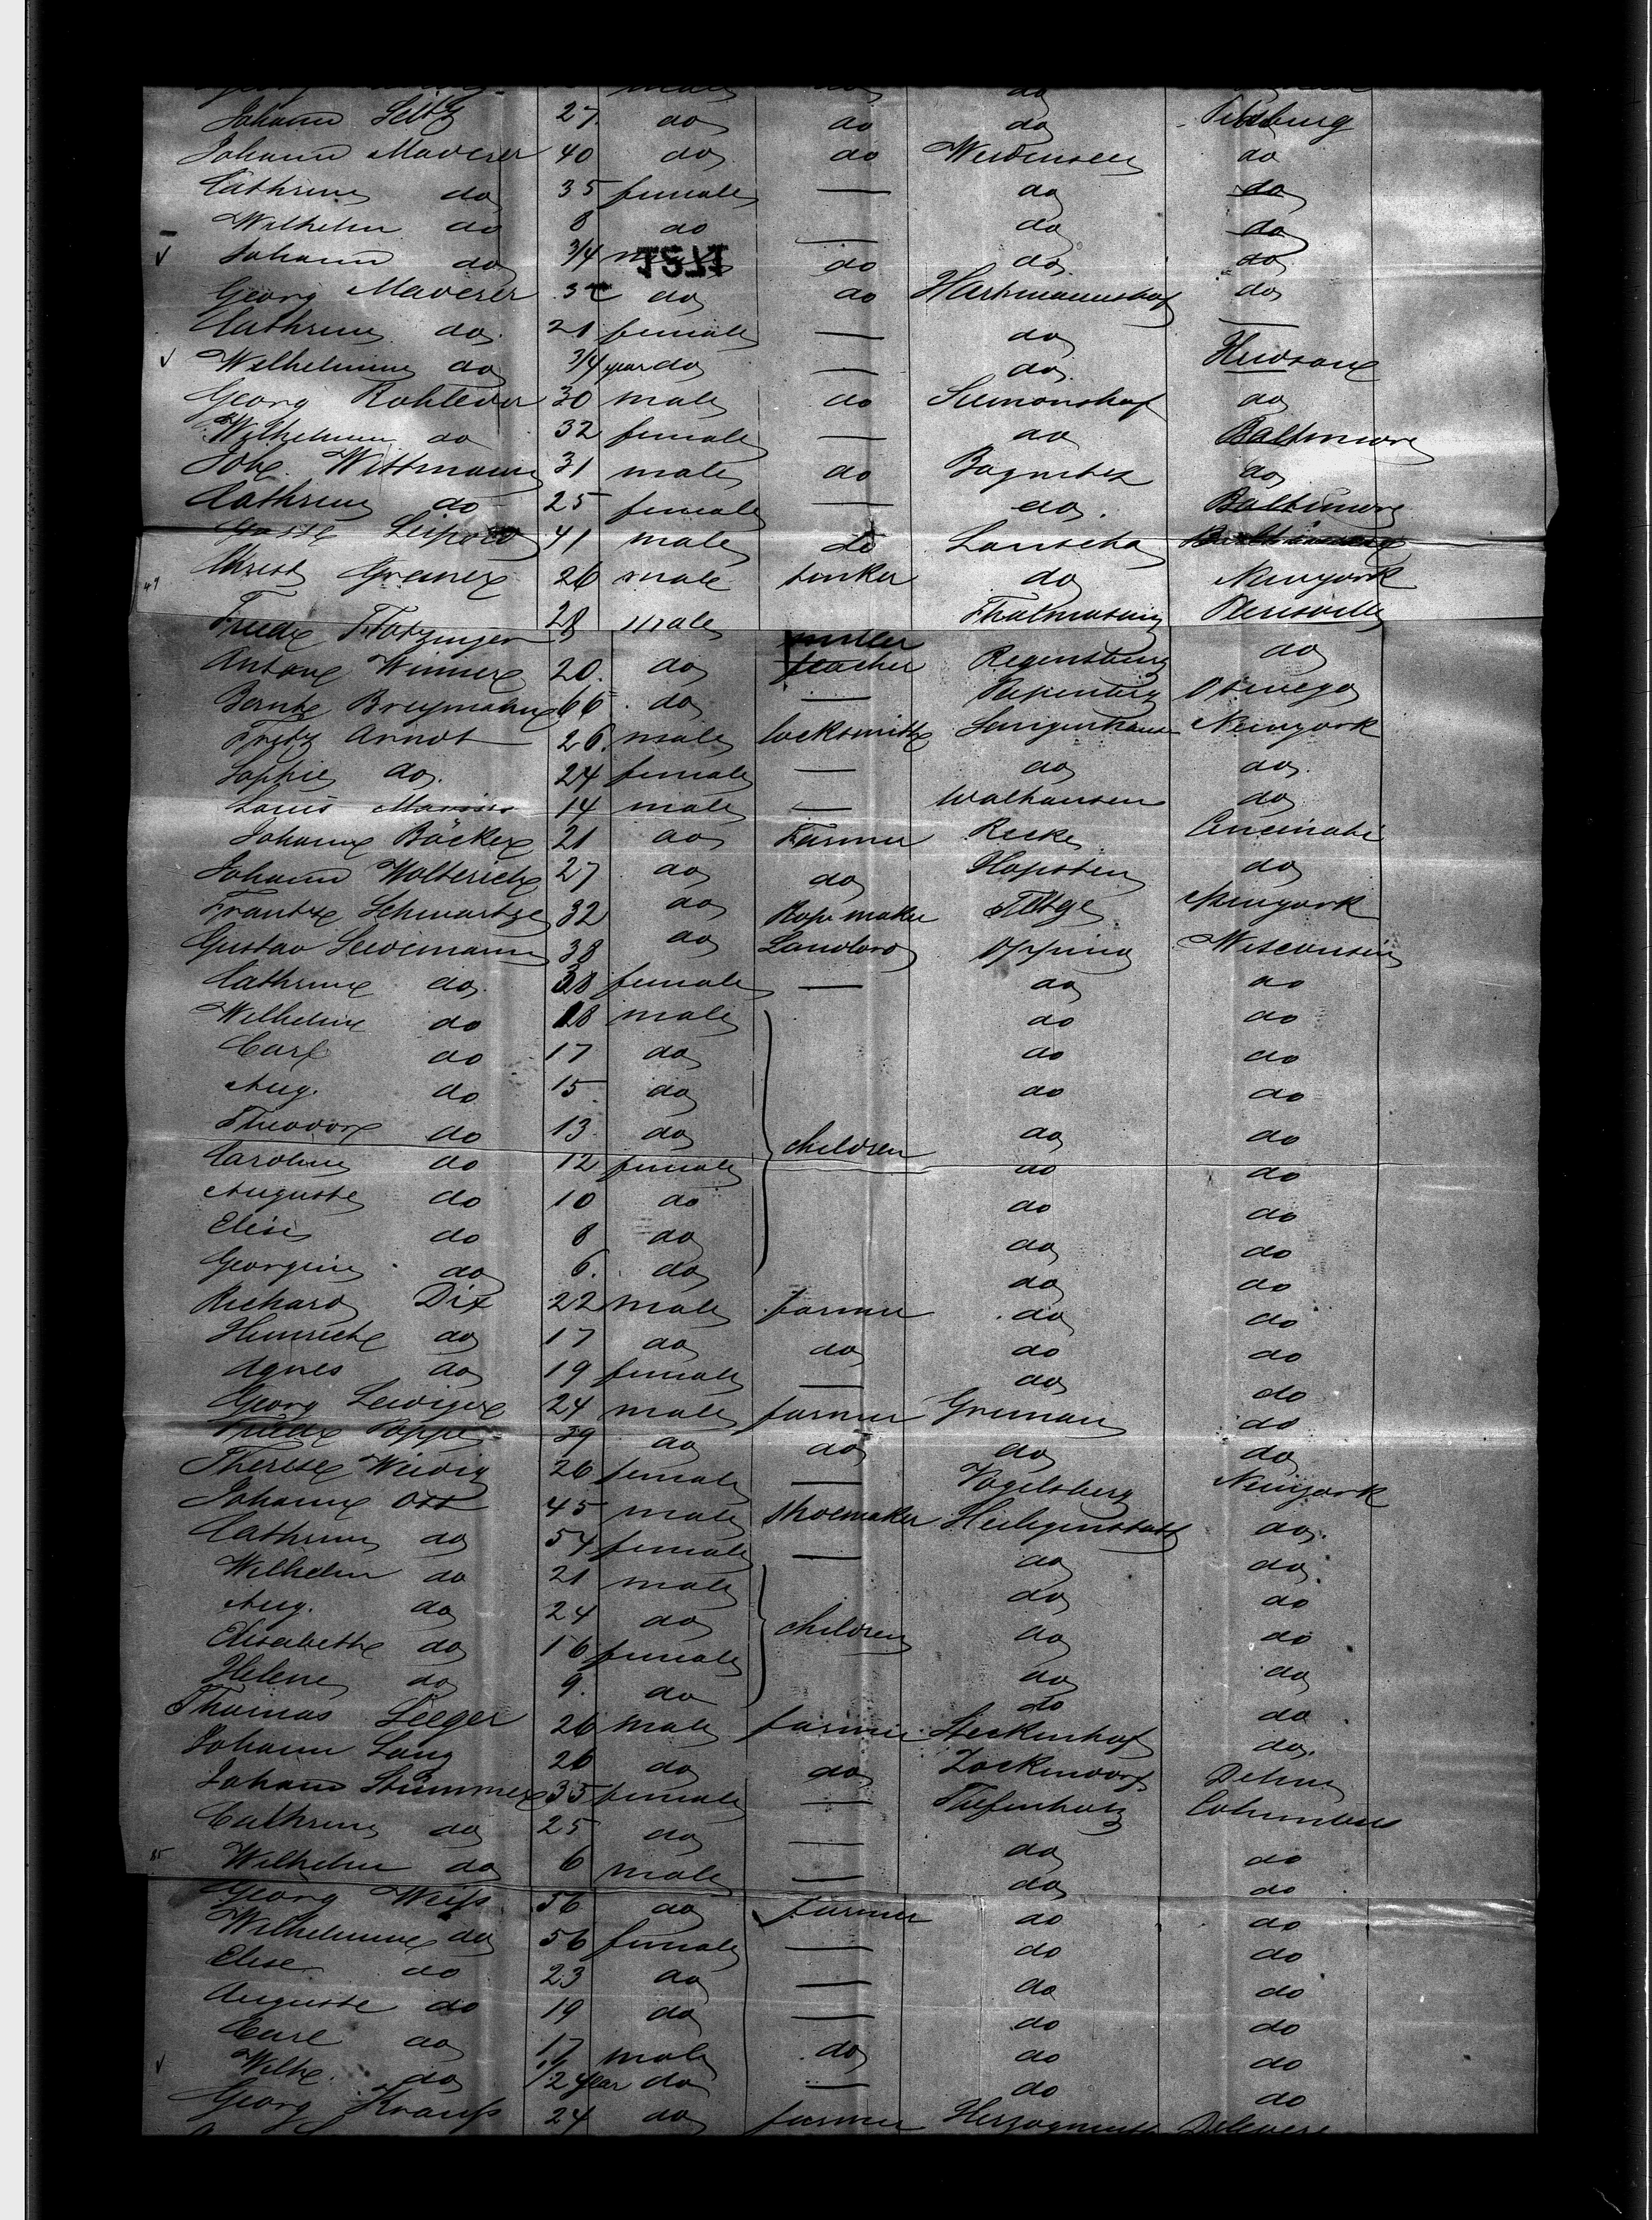 male do do
Johann Seitz 27. do do do Pittsburg
Johann Maderer 40 do do Weidensees do
Cathrine do 35 female — do do
Wilhelm do 8 do — do do
Johann do 3/4 do do do
1871
Georg Maderer do do Hartmannshof do
Cathrine do. 21 female — do —
Wilhelmine do 3/4 year do — do Hudson
Georg Rohleder 30 male do Simonshof do
Wilhelmine do 32 female — do Baltimore
Joh. Wittmann 31 male do do
Cathrine do 25 female — do. Baltimore
Leipold 41 male do Lauscha
49 Christ Greiner 26 male tinker do Newyork
Friedr 28 male miller Thalmässing
Anton Winner 20. do teacher Regensburg do
Bernh Breymann 66 do — Papenburg Oswego
Fritz Arndt 26. male locksmith Newyork
Sophie do. 24 female — do do.
Louis 14 male — Walhausen do
Johann Bäcker 21 do Farmer Recke Cincinati
Johann Wolterich 27 do do Hopsten do
Frantz Schwartze 32 do Rope maker Newyork
Gustav Seidemann 38 do Landlord Wisconsin
Cathrine do. 38 female — do do
Wilhelm do 18 male do do
Carl do 17 do do do
Aug. do 15 do do do
Theodor do 13 do children do do
Caroline do 12 female do do
Auguste do 10 do do do
Elise do 8 do do do
Georgine do 6. do do do
Richard Dix 22 male farmer do do
Heinrich do 17 do do do do
Agnes do 19 female — do do
Georg 24 male farmer do
Friedr Poppe 29 do do do do
Therese Weidig 26 female — Vogelsberg Newyork
Johann Ott 45 male shoemaker Heiligenstadt do.
Cathrine do 54 female — do do.
Wilhelm do 21 male do do
Aug. do 24 do children do do
Elisabeth do 16 female do do
Helene do 9. do do do
Thomas Seeger 26 male farmer Steckenhof do.
Johann Lang 26 do do Zockendorf
Johann Stummer 35 female — Tiefenholz Columbus
Cathrine do 25 do — do do
85 Wilhelm do 6 male — do do
Georg Weiss 56 do farmer do do
Wilhelmine do 56 female — do do
Elise do 23 do — do do
Auguste do 19 do — do do
Carl do 17 male do do do
Wilh. do 1/2 year do — do do
Georg Krauss 24 do farmer